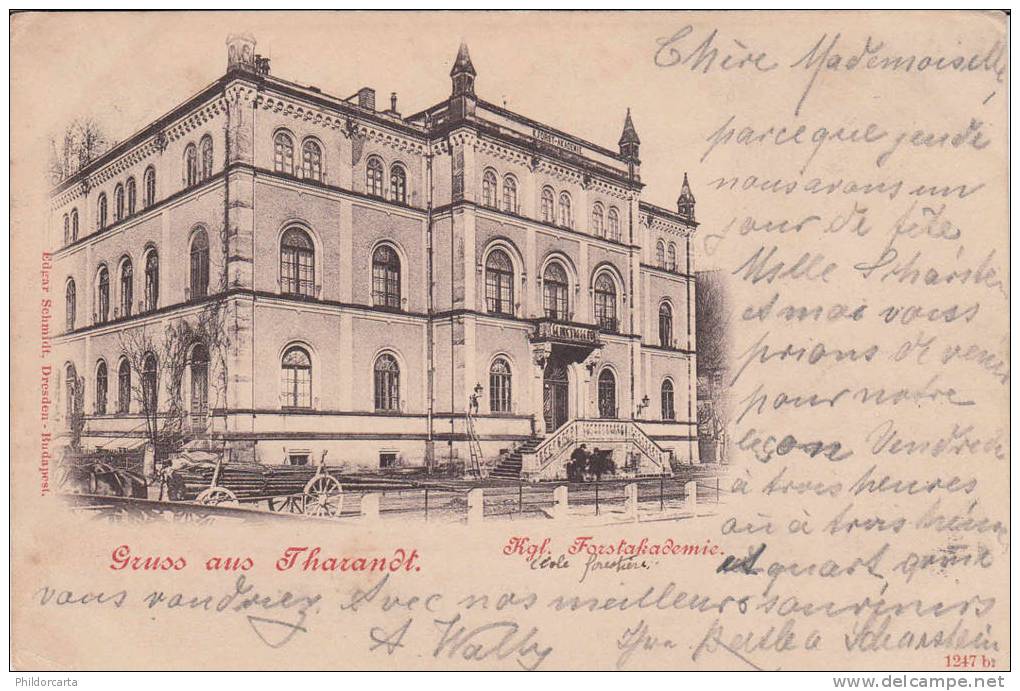 Chère Mademoiselle,
parceque jeudi
nous avons un
jour de fête,
Mslle Scharstein
et moi vous
prions de venir
pour notre
leçon Vendredi
à trois heures
ou à trois heures
et quart comme
vous voudriez. Avec nos meilleurs souvenirs
A. Wally Bertha Scharstein
K. FORST-AKADEMIE
Edgar Schmidt, Dresden - Budapest.
Gruss aus Tharandt.
Kgl. Forstakademie.
école forestière.
1247 b:
Phildorcarta
delcampe.net